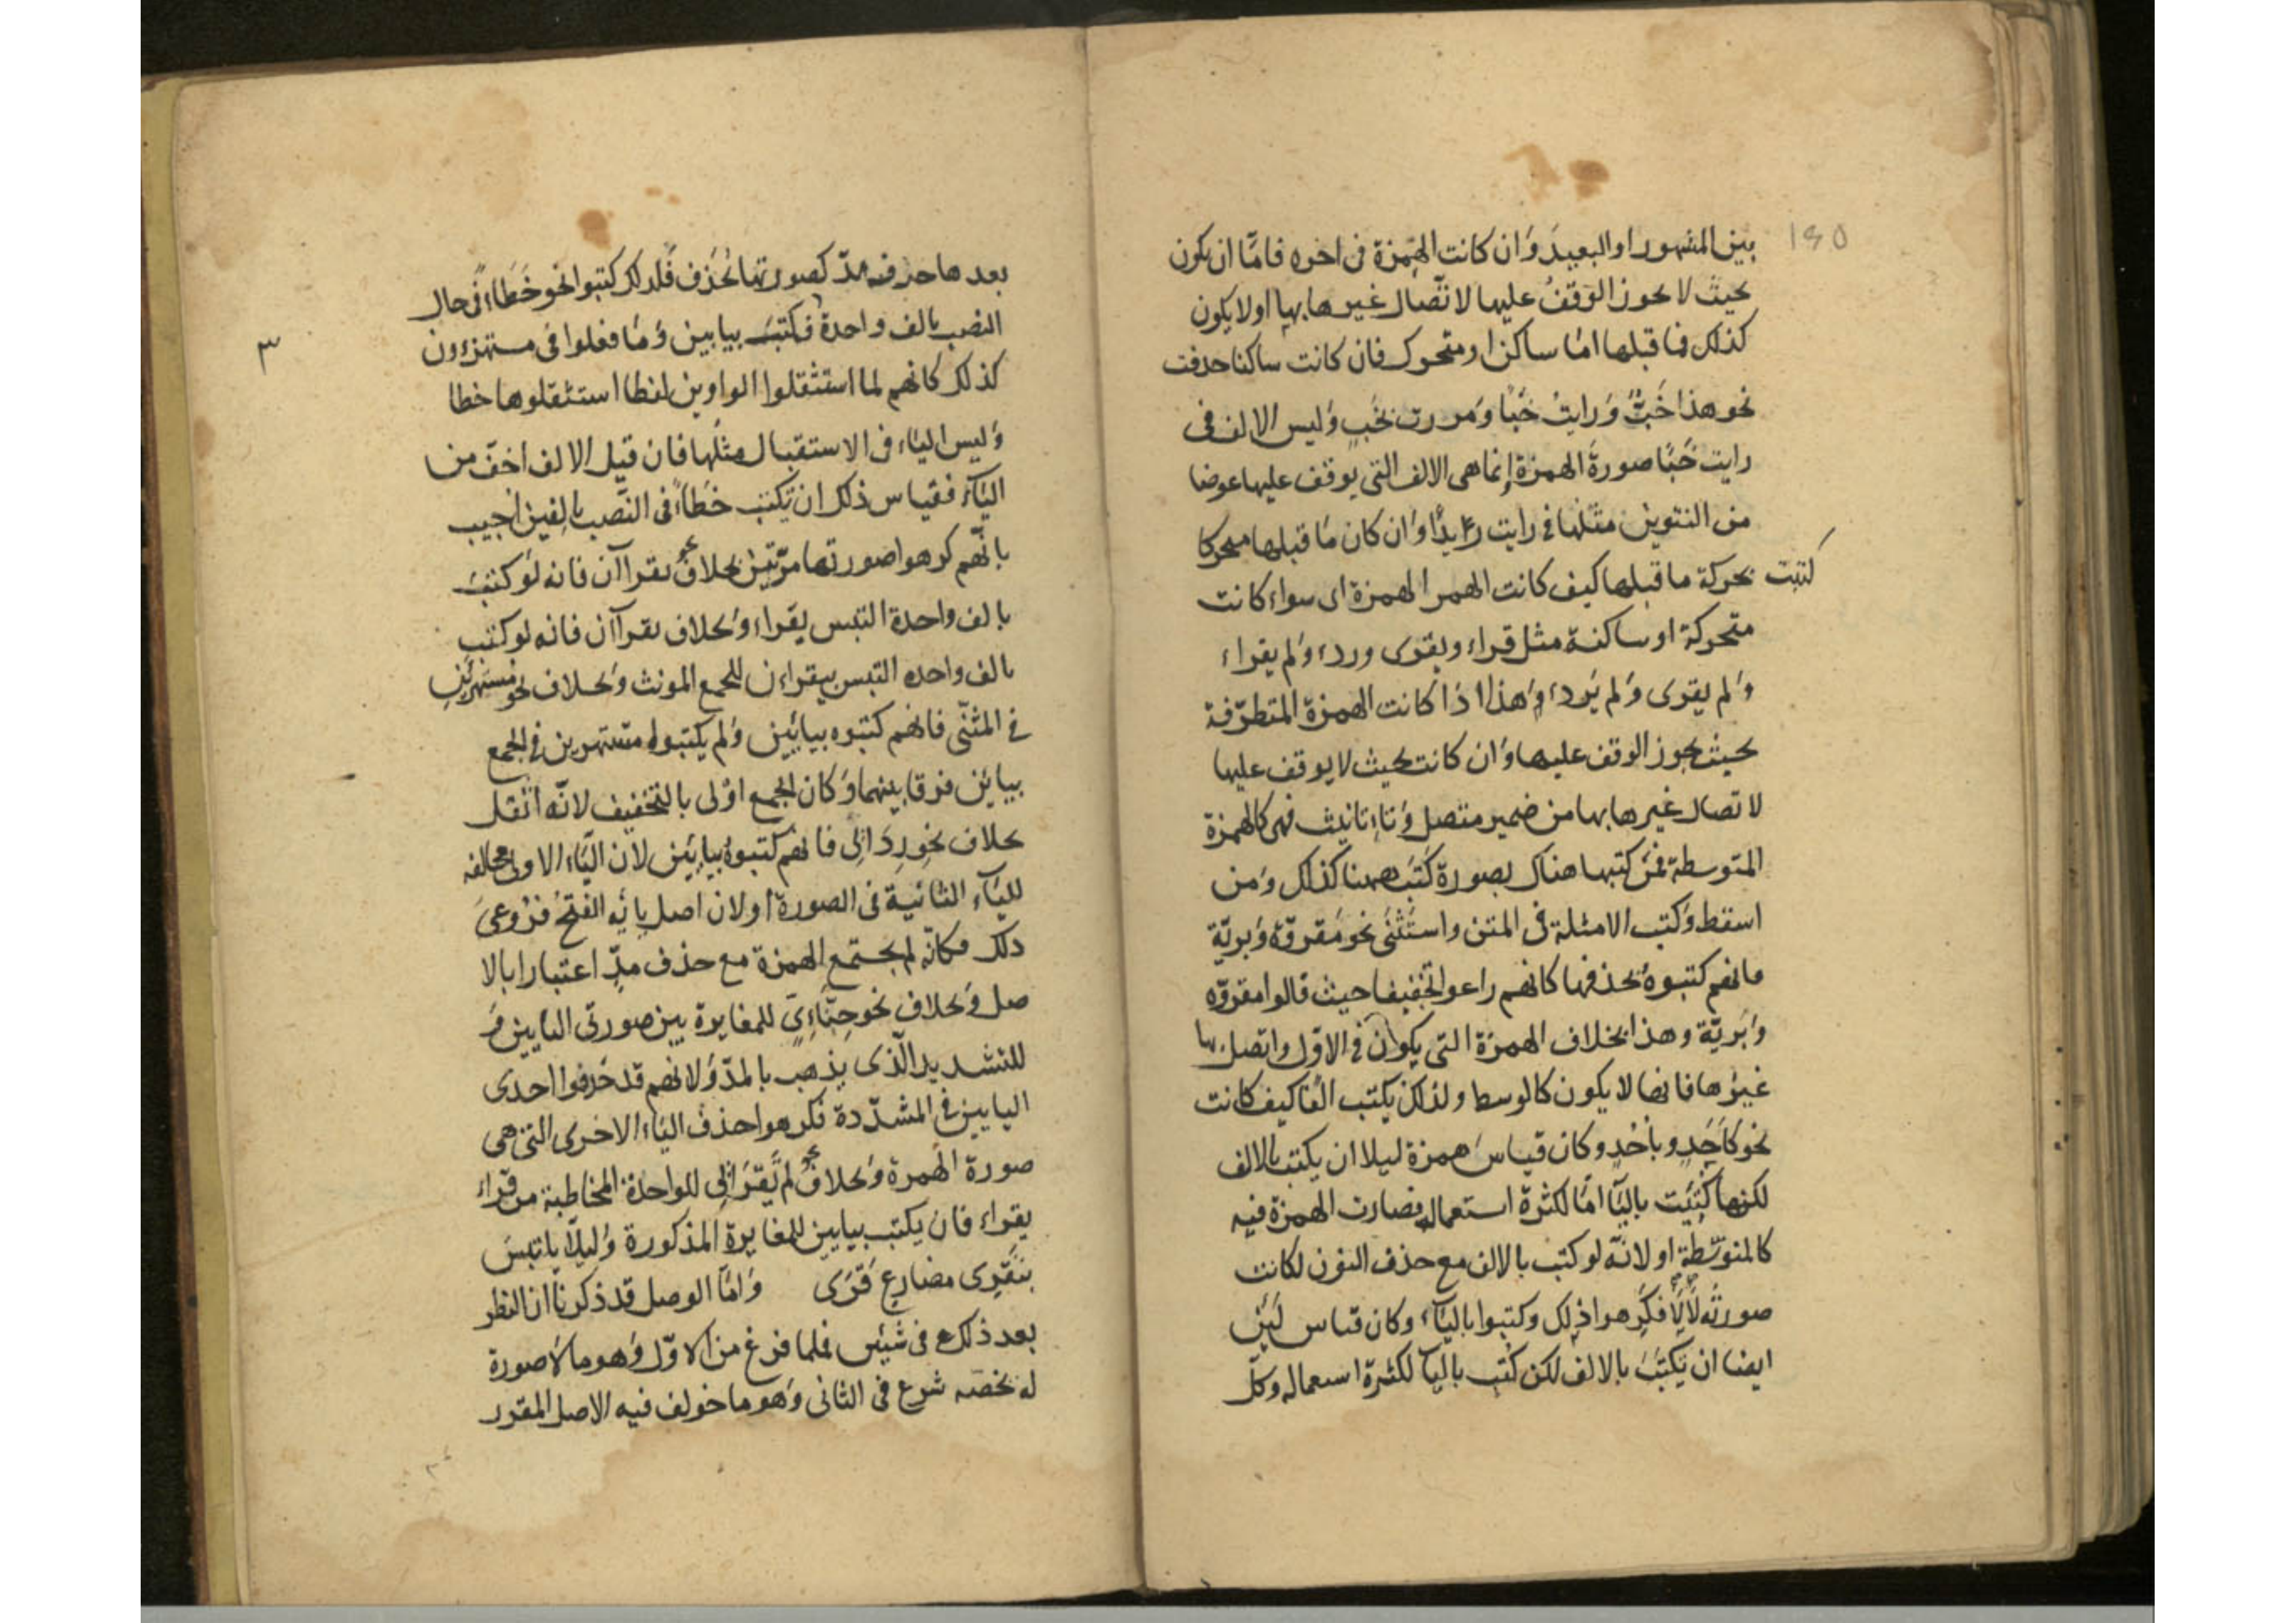 بين المشهور او البعيد وان كانت الهمزة فى اخره فامّا ان يكون
بحيث لا يجوز الوقف عليها لاتّصال غيرها بها او لا يكون
كذلك فما قبلها امّا ساكن او متحرك فان كانت ساكنا حذفت
نحو هذا خَبٌ وَرايتُ خَبًا وَمررت بخَبٍ وَليس الالف فى
رايت خَبًا صورة الهمزة إنما هى الالف التى يوقف عليها عوضا
من التنوين مثلها في رايت زيدًا وَان كان مَا قبلها متحركا
كتبت
بحركة ما قبلها كيف كانت الهمز الهمزة اى سواء كانت
متحركة او ساكنة مثل قراء ويقرى وردء وَلم يقراء
وَلم يقرى وَلم يَردء وَهذا اذا كانت الهمزة المتطرّفة
بحيث يجوز الوقف عليها وَان كانت بحيث لا يوقف عليها
لاتصال غيرها بها من ضمير متصل وَتاء تانيث فهى كالهمزة
المتوسطة فمن كتبها هناك بصورة كتَبَ ههنا كذلك وَمن
اسقط وَكتب الامثلة فى المتن واستثنى نحو مَقروّة وَبريّة
فانهم كتبوهُ بحذفها كانهم راعوا تخفيفا حيث قالوا مقروّه
وَبَريّة وهذا بخلاف الهمزة التى يكون في الاوّل واتصل بها
غيرها فانها لا يكون كالوسط ولذلك يكتب الفًا كيف كانت
نحو كَاَحَدٍ وباحْدٍ وكان قياسَ همزة ليلا ان يكتب بالالف
لكنها كُتِبَت باليَآ امّا لكثرة استعماله فصارت الهمزة فيه
كالمتوسّطة او لانّه لو كتب بالالف مع حذف النون لكانت
صورتُه لَألَا فكرهوا ذلك وكتبوا باليَآء وكان قياس لَئِن
ايضا ان يَكتبَ بالالف لكن كُتب باليآ لكثرة استعماله وكلّ
بعدها حرف مدّ كصورتها تُحْذَف فَلذلك كتبوا نحو خَطَاءً فى حال
النصب بالف واحدة فكتبَ بيايين وَمَا فعلوا فى مستهزءون
كذلك كانهم لما استثقلوا الواوين لفظا استثقلوها خطا
وَليس الياء فى الاستقبال مثلها فان قيل الالف اخفّ من
اليَآء فقياس ذلك ان تكتب خَطَاءً فى النَّصب بالفين اجيب
بانّهم كرهوا صورتها مرّتين بخلاف يقراآن فانه لو كتبَ
بالف واحدة التبس يقراء وَبخلاف يقراآن فانه لو كتب
بالف واحده التبس بيقراءن للجمع المونث وَبخلاف نحو مستهزئين
فى المثنّى فانهم كتبوه بيائين وَلم يكتبوا مستهزين في الجمع
بيائين فرقا بينهما وَكان الجمع اوْلى بالتخفيف لانّه اثقل
بخلاف نحو رِدَائى فانهم كتبوهُ بيائين لان اليَاء الاولى مخالفه
لليَآء الثانية فى الصورة او لان اصل يائه الفتح فروعىَ
ذلك فكانّه لم يجتمع الهمزة مع حذف مدّ اعتبارا بالا
صل وَبخلاف نحو حِنَّاءِىّ للمغايرة بين صورتى اليايين وَ
للتشديد الّذى يذهب بالمدّ وَلانهم قد حَذفوا احدى
اليايين فى المشدّدة فكرهوا حذف الياء الاخرى التى هى
صورة الهمزة وَبخلاف لم تَقرَائى للواحدة المخاطبة من قراء
يقراء فان يكتب بيايين للمغايرة المذكورة وَليلّا يلتبسَ
بتَقْرِى مضارع قَرَى وَامّا الوصل قد ذكرنا ان النظر
بعد ذلك فى شيئين فلما فرغ من الاوّل وَهو ما لا صورة
له تخصّه شرع فى الثانى وَهو ما خولف فيه الاصل المقرر